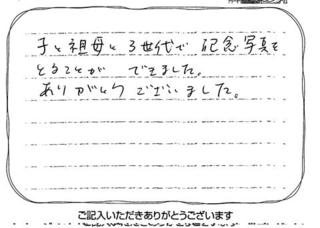 子と祖母と3世代で 記念写真を
とることが できました。
ありがとう ございました。
ご記入いただきありがとうございます